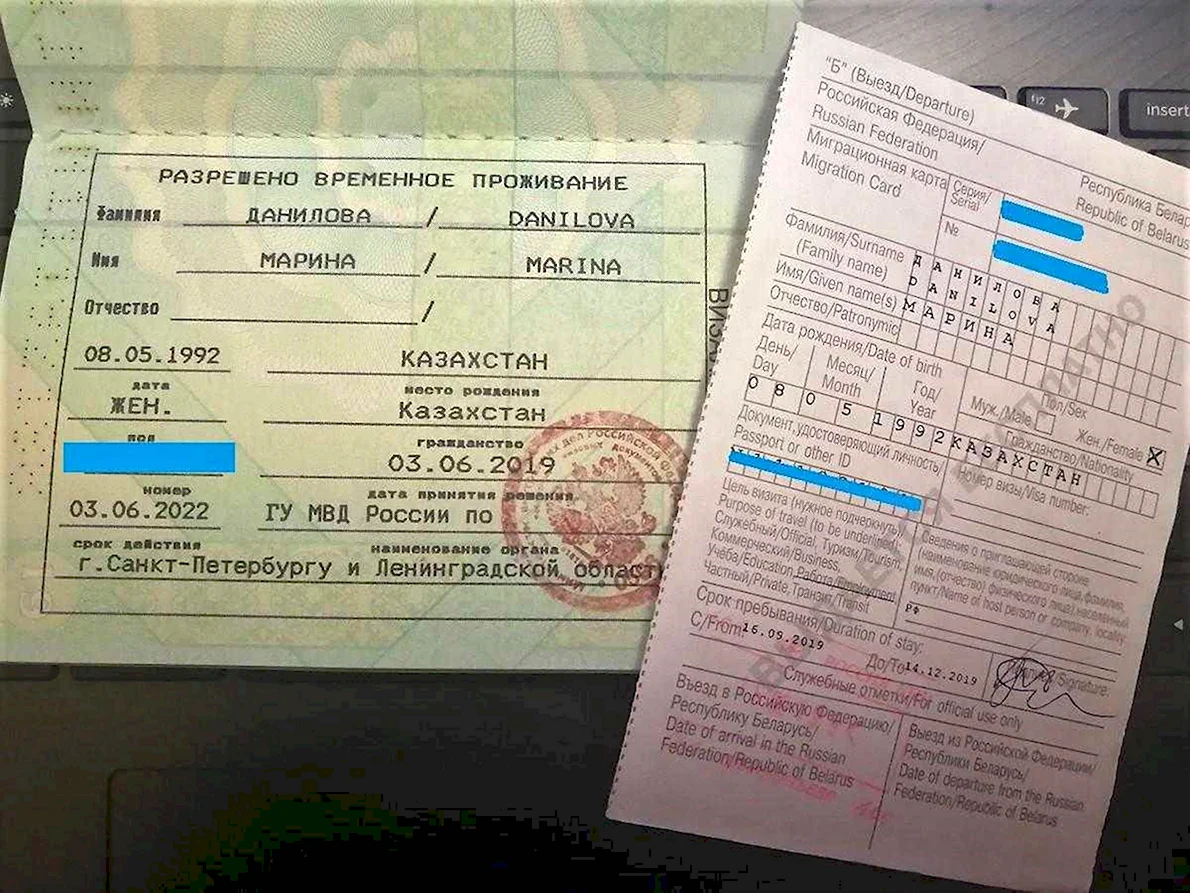 РАЗРЕШЕНО ВРЕМЕННОЕ ПРОЖИВАНИЕ
Фамилия ДАНИЛОВА / DANILOVA
Имя МАРИНА / MARINA
Отчество /
08.05.1992 КАЗАХСТАН
дата место рождения
ЖЕН. Казахстан
пол гражданство
03.06.2019
номер дата принятия решения
03.06.2022 ГУ МВД России по
срок действия наименование органа
г.Санкт-Петербургу и Ленинградской област
"Б" (Выезд/Departure)
Российская Федерация/
Russian Federation
Республика Белар
Republic of Belarus
Миграционная карта
Migration Card
Серия/
Serial
№
Фамилия/Surname
(Family name)
ДАНИЛОВА
DANILOVA
Имя/Given name(s) МАРИНА
Отчество/Patronymic
Дата рождения/Date of birth
День/
Day
Месяц/
Month
Год/
Year
Пол/Sex
Муж./Male Жен./Female X
08 05 1992 КАЗАХСТАН
Документ, удостоверяющий личность/
Passport or other ID
Гражданство/Nationality
Номер визы/Visa number:
Цель визита (нужное подчеркнуть)/
Purpose of travel (to be underlined):
Служебный/Official, Туризм/Tourism,
Коммерческий/Business,
Учёба/Education, Работа/Employment
Частный/Private, Транзит/Transit
Сведения о приглашающей стороне
(наименование юридического лица, фамилия,
имя, (отчество) физического лица), населённый
пункт/Name of host person or company, locality:
РФ
Срок пребывания/Duration of stay:
С/From: 16.09.2019 До/To 14.12.2019
Signature:
Служебные отметки/For official use only
Въезд в Российскую Федерацию/
Республику Беларусь/
Date of arrival in the Russian
Federation/Republic of Belarus
Выезд из Российской Федерации/
Республики Беларусь/
Date of departure from the Russian
Federation/Republic of Belarus
F12
insert